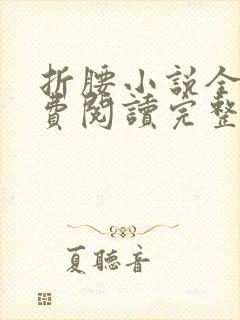 折腰小说全
費閱讀完整
夏聽音